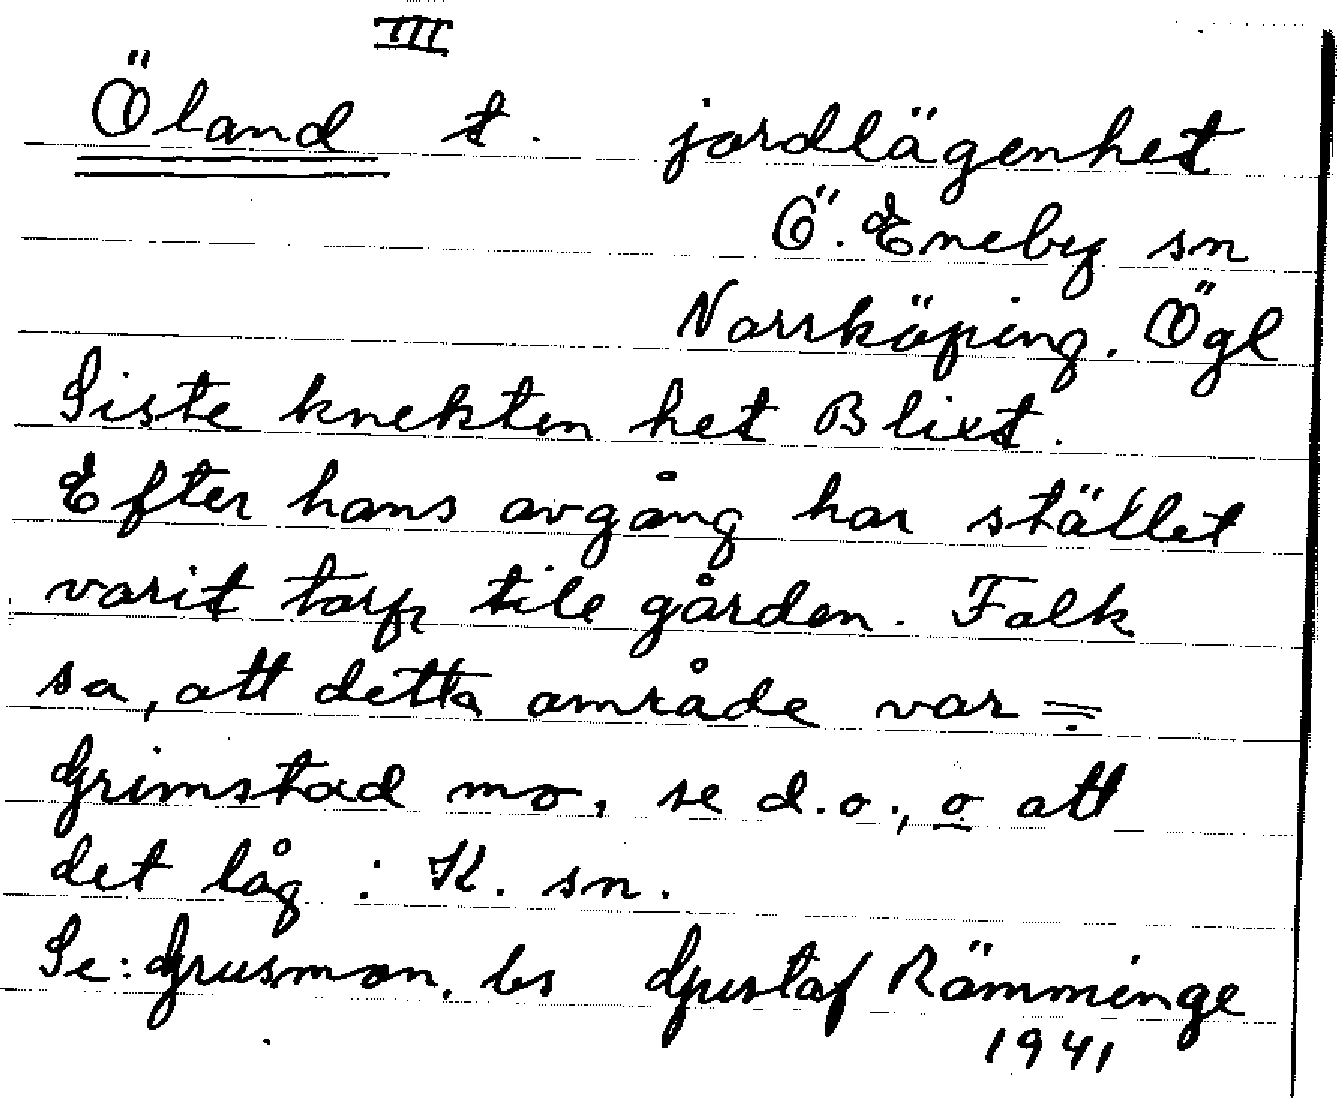 III
Öland t. jordlägenhet
Ö. Eneby sn
Norrköping. Ögl
Siste knekten het Blixt.
Efter hans avgång har stället
varit torp till gården. Folk
sa, att detta område var =
Grimstad mo, se d.o., o att
det låg i K. sn.
Se: Grusmon. bs Gustaf Rämminge
1941